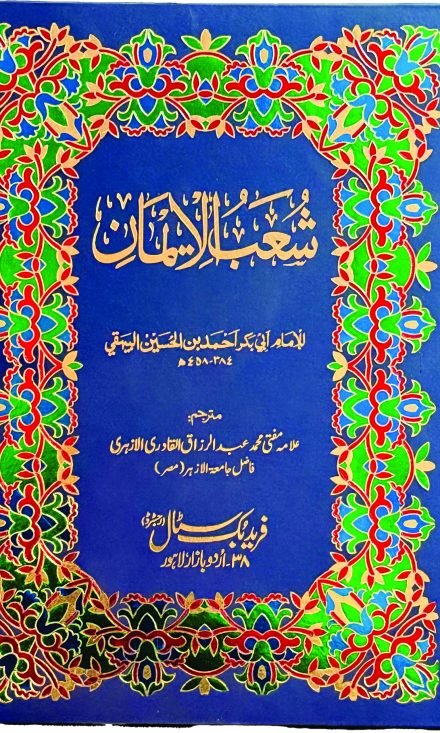 شُعَبُ الْإِيمَانِ
للإمام أبي بكر أحمد بن الحسين البيهقي
٣٨٤-٤٥٨ھ
مترجم:
علامہ مفتی محمد عبد الرزاق القادری الازہری
فاضل جامعۃ الازہر (مصر)
فرید بک سٹال (رجسٹرڈ)
۳۸-اُردو بازار لاہور